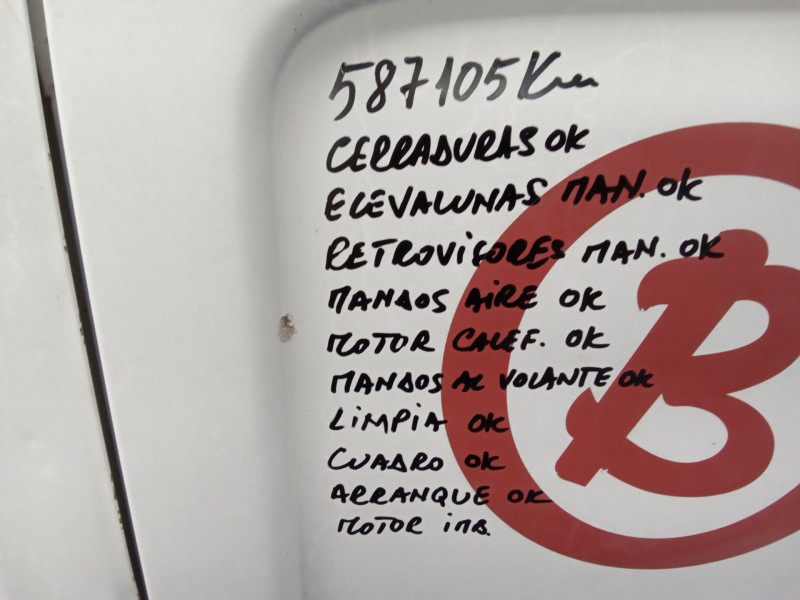 587105 Km
CERRADURAS OK
ELEVALUNAS MAN. OK
RETROVISORES MAN. OK
MANDOS AIRE OK
MOTOR CALEF. OK
MANDOS AL VOLANTE OK
LIMPIA OK
CUADRO OK
ARRANQUE OK
MOTOR INB.
B